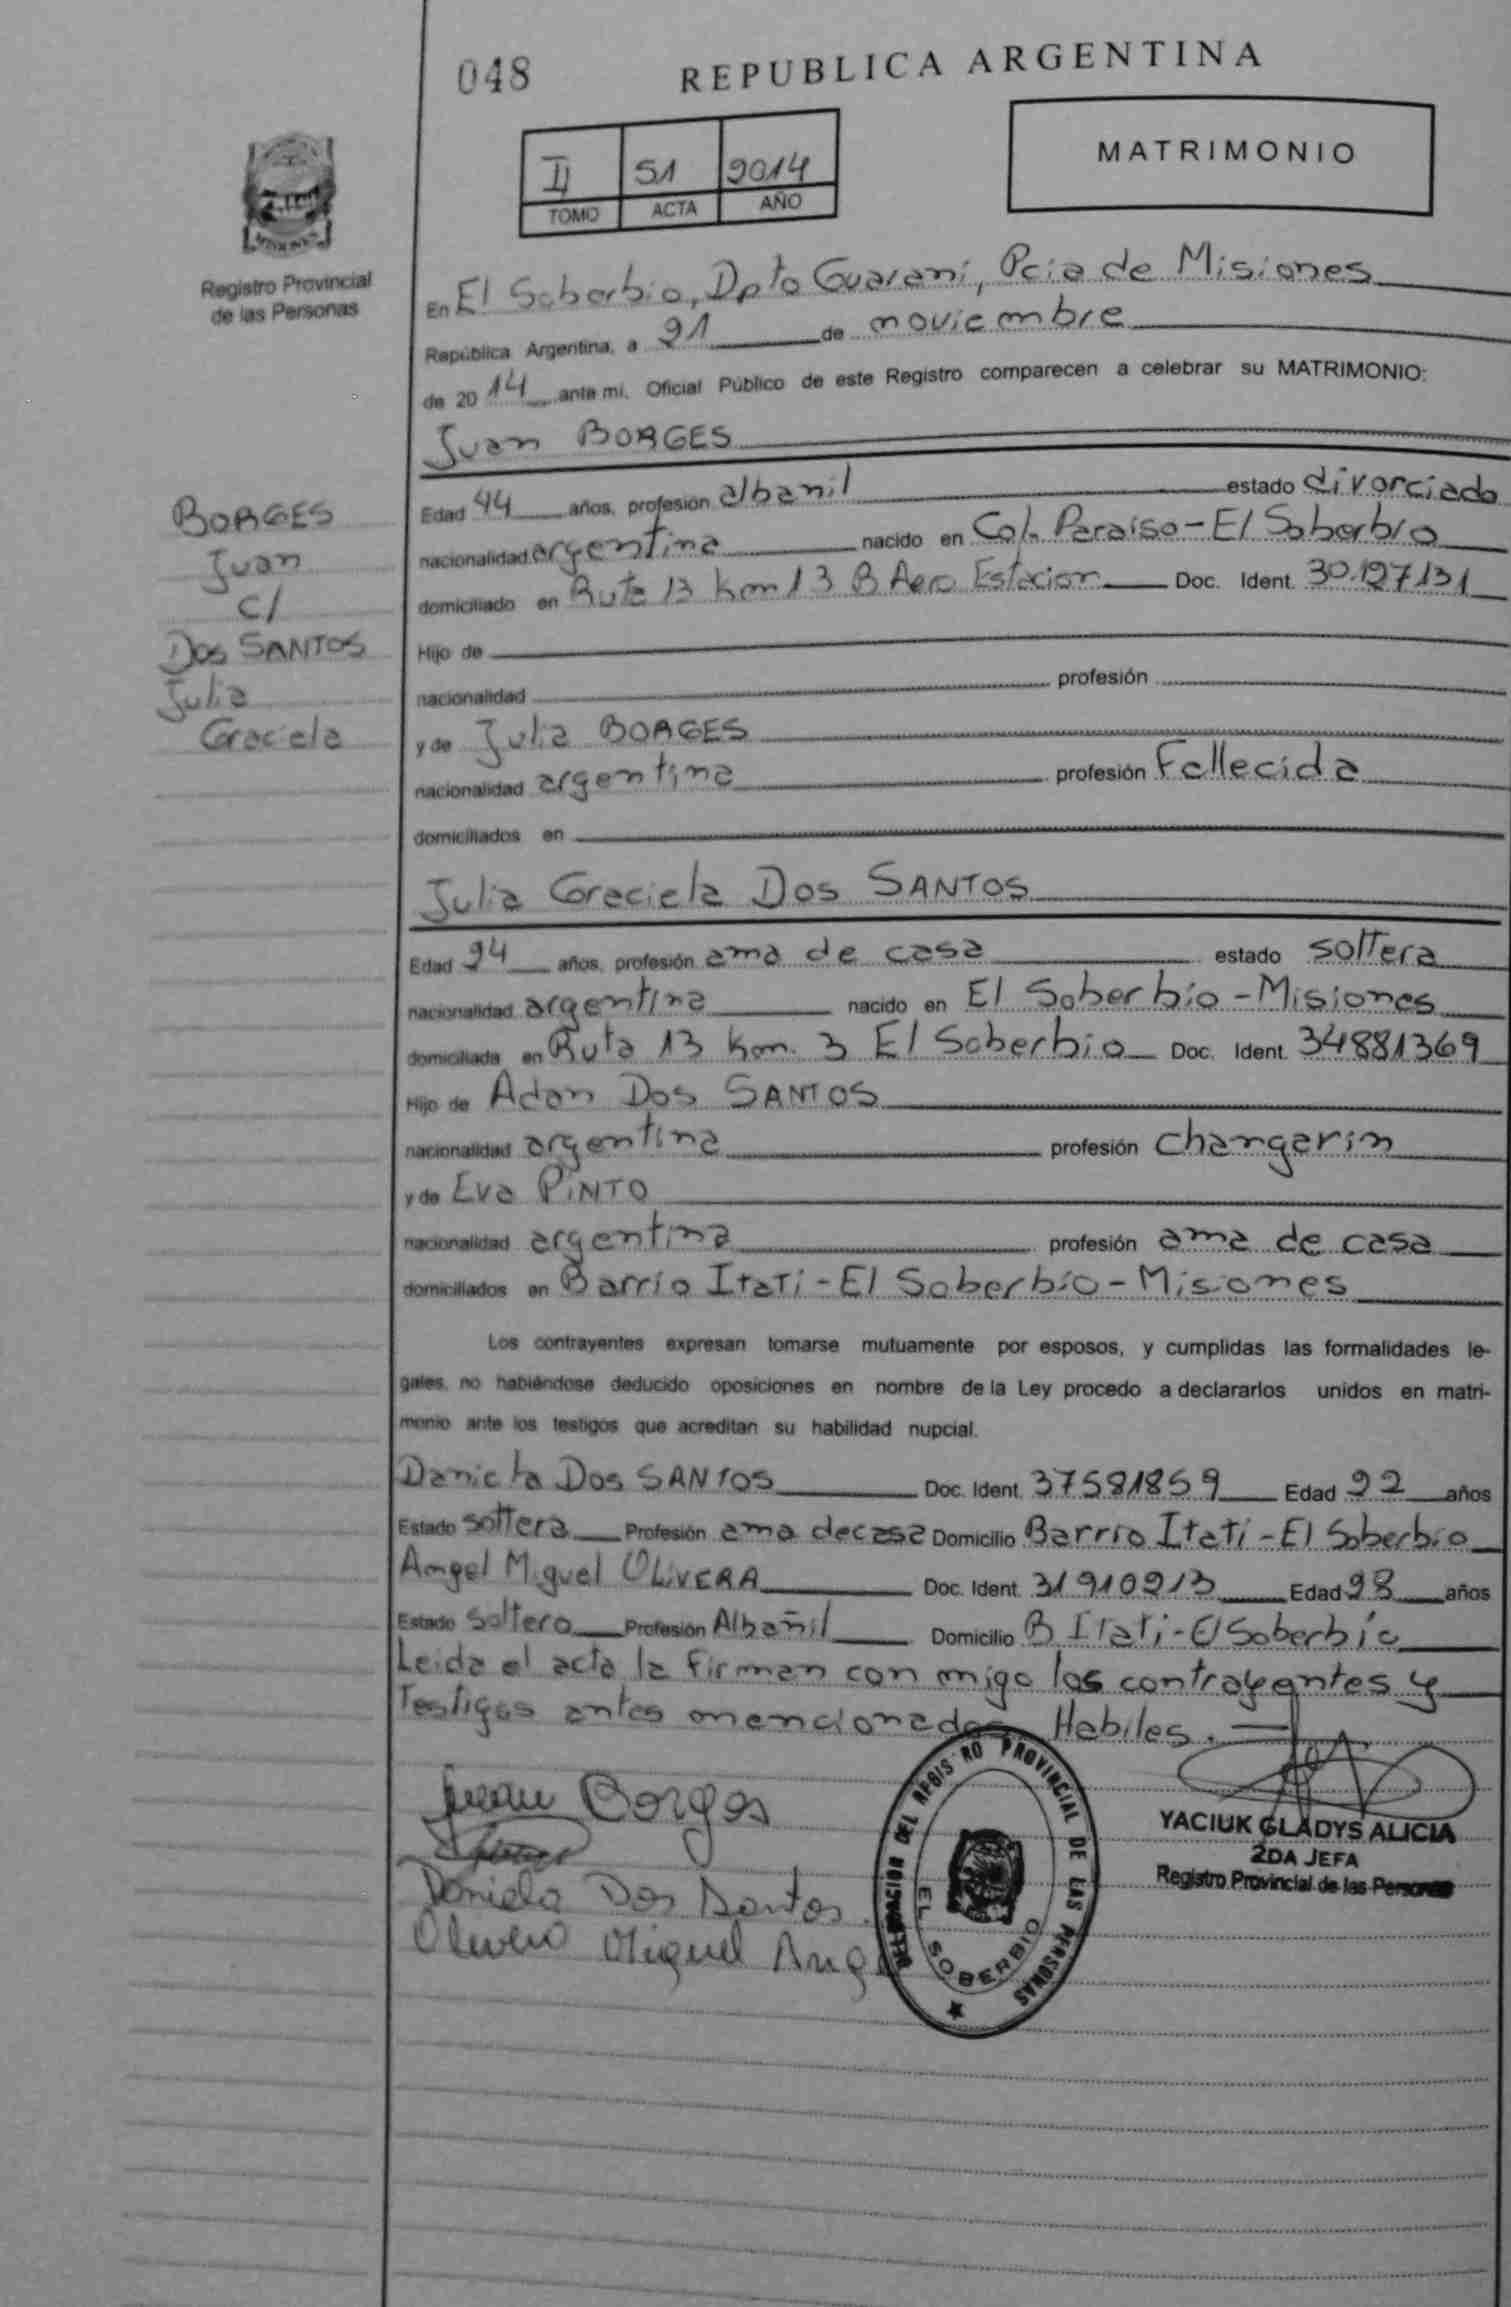 048
REPUBLICA ARGENTINA
II 51 2014
TOMO ACTA AÑO
MATRIMONIO
MISIONES
Registro Provincial
de las Personas
En El Soberbio, Dpto Guaraní, Pcia de Misiones
República Argentina, a 21 de noviembre
de 2014 ante mi, Oficial Público de este Registro comparecen a celebrar su MATRIMONIO:
Juan BORGES
BORGES
Juan
C/
Dos SANTOS
Julia
Graciela
Edad 44 años, profesión albanil estado divorciado
nacionalidad argentina nacido en Col. Paraiso-El Soberbio
domiciliado en Ruta 13 km 13 B Aero Estacion Doc. Ident. 30.127131
Hijo de
nacionalidad profesión
y de Julia BORGES
nacionalidad argentina profesión Fallecida
domiciliados en
Julia Graciela Dos SANTOS
Edad 24 años, profesión ama de casa estado soltera
nacionalidad argentina nacido en El Soberbio-Misiones
domiciliada en Ruta 13 km. 3 El Soberbio Doc. Ident. 34881369
Hijo de Adan Dos SANTOS
nacionalidad argentina profesión changarin
y de Eva PINTO
nacionalidad argentina profesión ama de casa
domiciliados en Barrio Itati-El Soberbio-Misiones
Los contrayentes expresan tomarse mutuamente por esposos, y cumplidas las formalidades le-
gales, no habiéndose deducido oposiciones en nombre de la Ley procedo a declararlos unidos en matri-
monio ante los testigos que acreditan su habilidad nupcial.
Daniela Dos SANTOS Doc. Ident. 37581859 Edad 22 años
Estado soltera Profesión ama de casa Domicilio Barrio Itati-El Soberbio
Angel Miguel OLIVERA Doc. Ident. 31910213 Edad 28 años
Estado Soltero Profesión Albañil Domicilio B Itati-El Soberbio
Leida el acta la firman con migo los contrayentes y
Testigos antes mencionados Habiles.
Juan Borges
Daniela Dos Santos
Olivera Miguel Ange
DELEGACION DEL REGISTRO PROVINCIAL DE LAS PERSONAS
EL SOBERBIO
YACIUK GLADYS ALICIA
2DA JEFA
Registro Provincial de las Personas